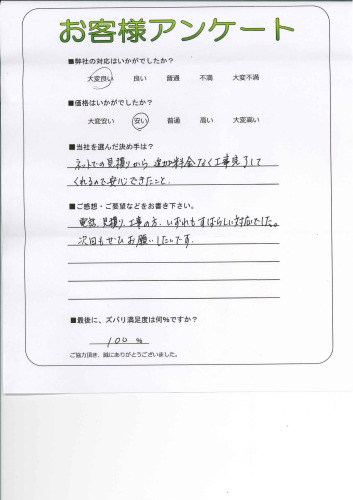 お客様アンケート
■弊社の対応はいかがでしたか?
大変良い 良い 普通 不満 大変不満
■価格はいかがでしたか?
大変安い 安い 普通 高い 大変高い
■当社を選んだ決め手は?
ネットでの見積りから追加料金なく工事完了して
くれるので安心できたこと。
■ご感想・ご要望などをお書き下さい。
電話、見積り、工事の方、いずれもすばらしい対応でした。
次回もぜひお願いしたいです。
■最後に、ズバリ満足度は何%ですか?
100 %
ご協力頂き、誠にありがとうございました。